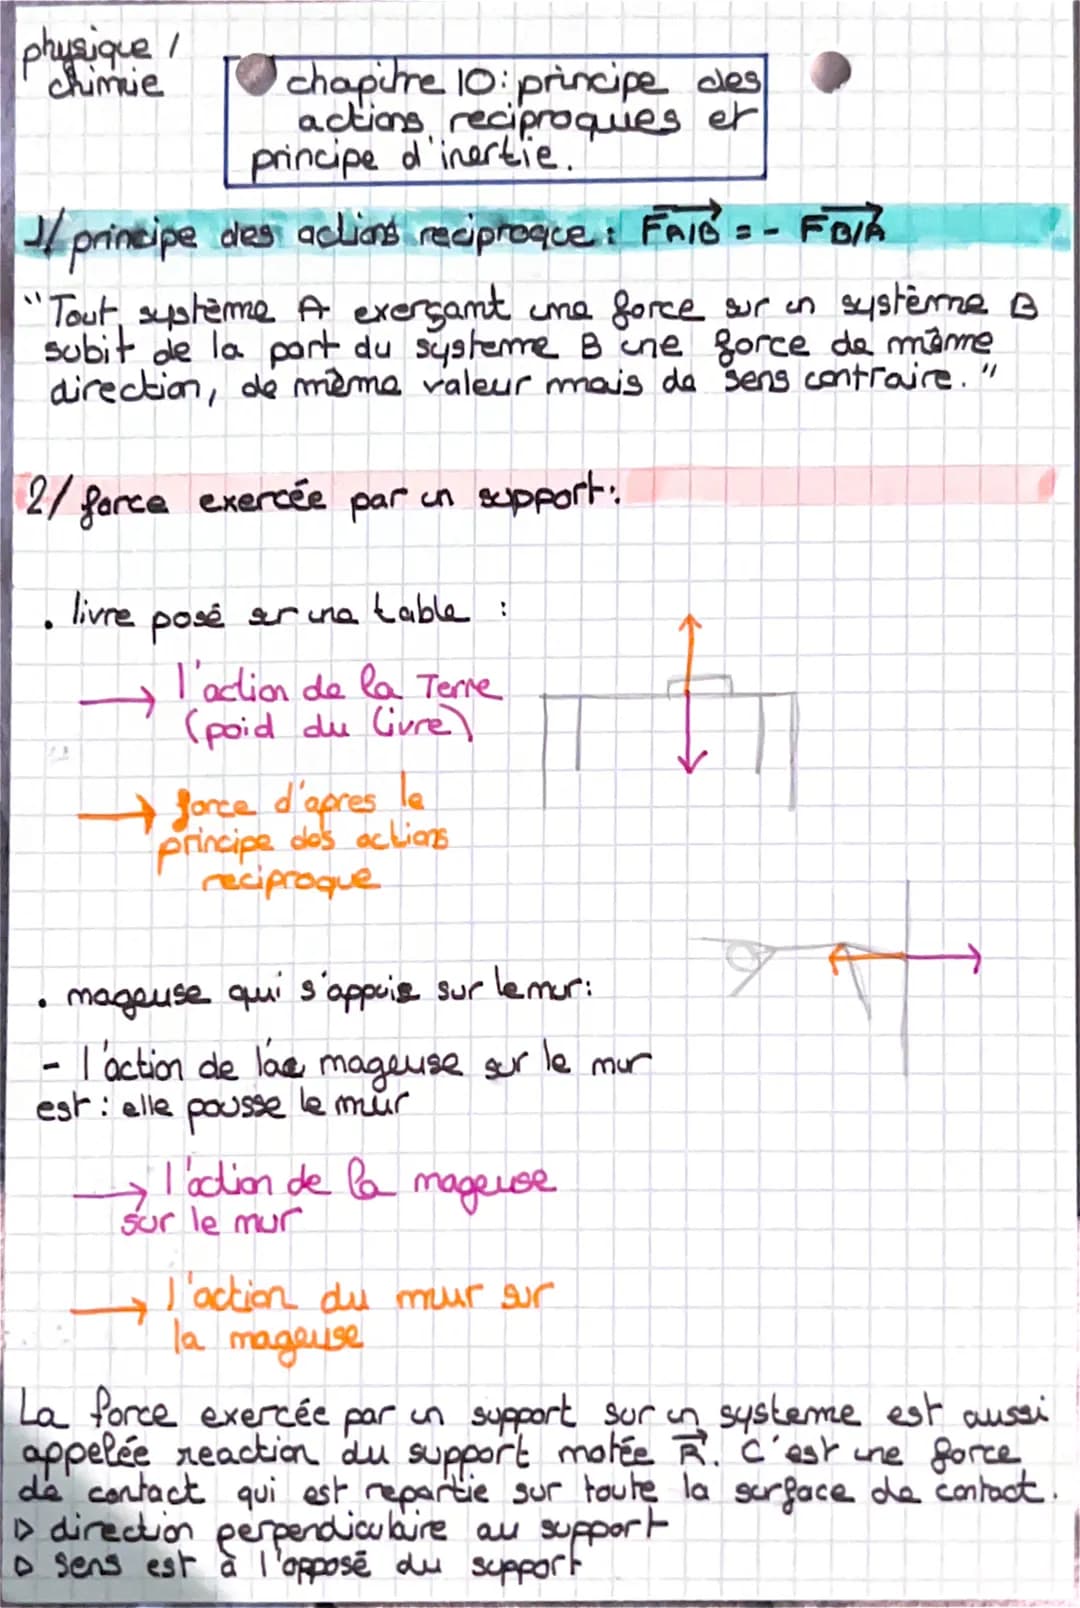 physique /
chimie
chapitre 10 : principe des
actions reciproques et
principe d'inertie.
1/ principe des actions reciproque : FA/B = - FB/A
"Tout système A exerçant une force sur un système B
subit de la part du systeme B une force de même
direction, de même valeur mais de sens contraire."
2/ force exercée par un support :
. livre posé sur une table :
→ l'action de la Terre
(poid du livre)
→ force d'apres le
principe des actions
reciproque
. nageuse qui s'appuie sur le mur :
- l'action de la nageuse sur le mur
est : elle pousse le mur
→ l'action de la nageuse
sur le mur
→ l'action du mur sur
la nageuse
La force exercée par un support sur un systeme est aussi
appelée reaction du support notée R. C'est une force
de contact qui est repartie sur toute la surface de contact.
▷ direction perpendiculaire au support
▷ sens est à l'opposé du support